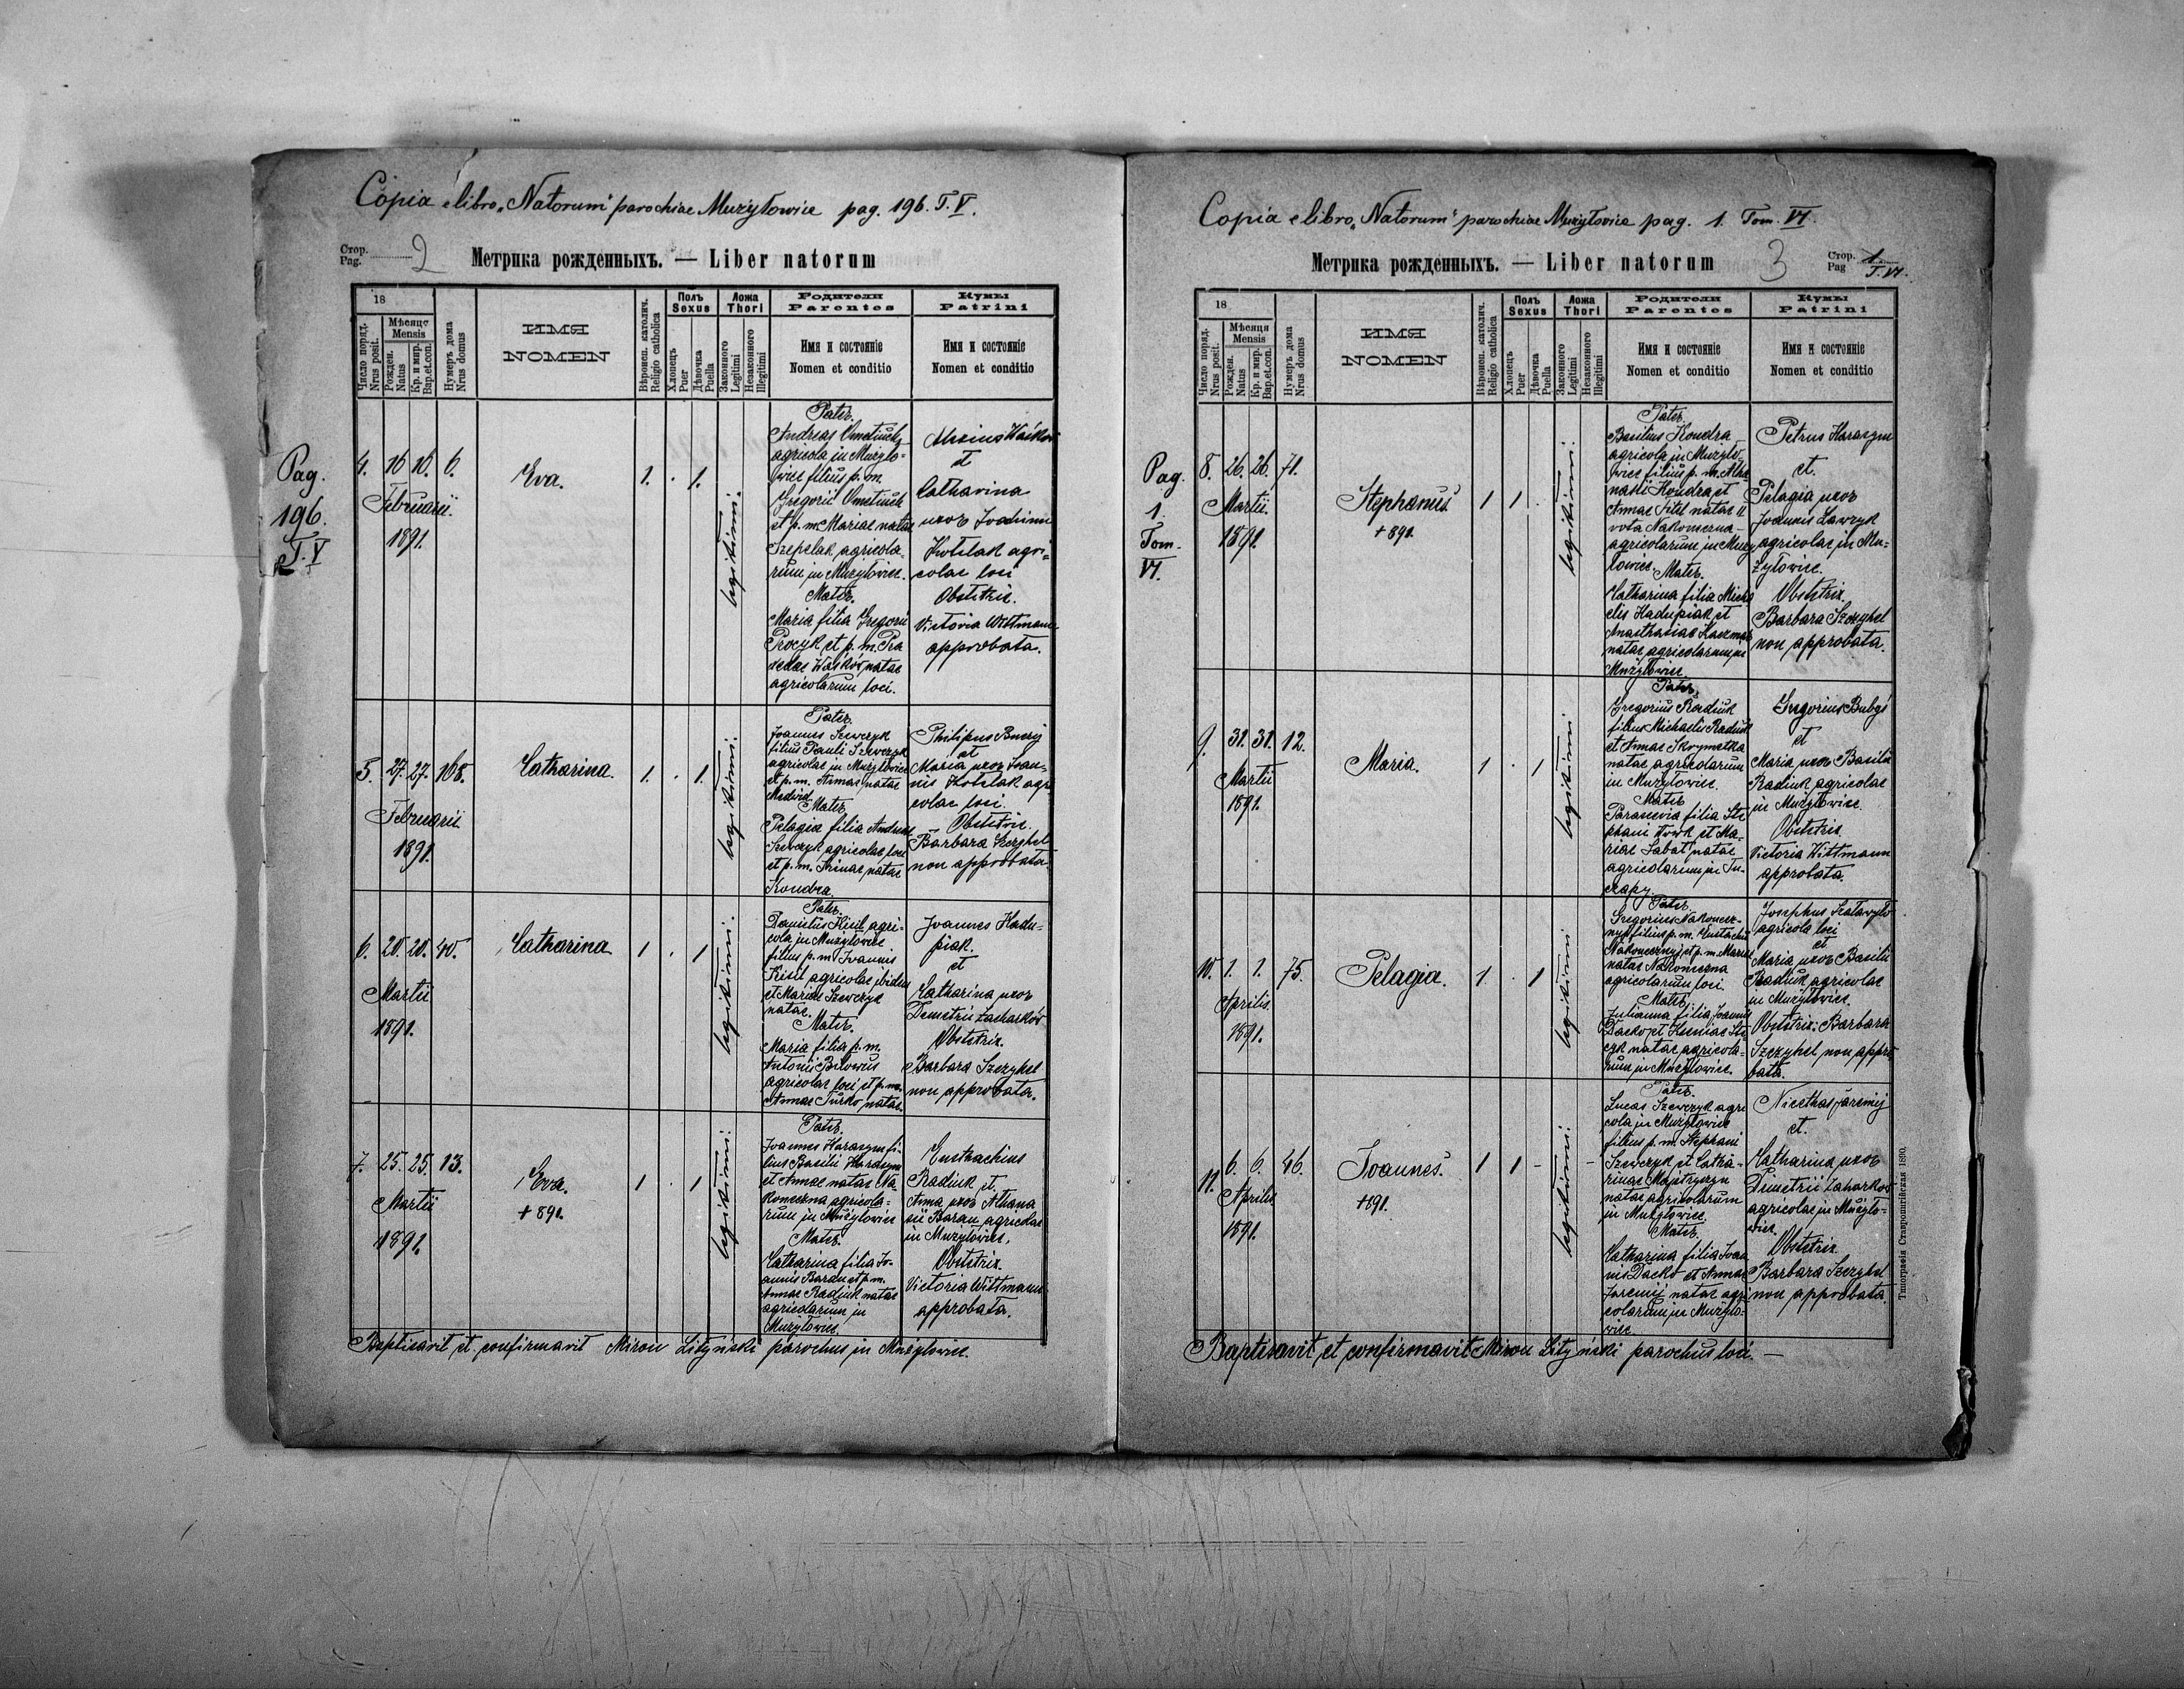 Copia e libro „Natorum" parochiae Mużyłowice pag. 196. T. V.
Стор.
Pag. 2
Метрика рожденныхъ. — Liber natorum
18
Число поряд.
Nrus posit.
Мѣсяцѣ
Mensis
Рожден.
Natus
Кр. и мир.
Bap. et con.
Нумеръ дома
Nrus domus
ИМЯ
NOMEN
Вѣроисп. католич.
Religio catholica
Полъ
Sexus
Хлопецъ
Puer
Дѣвочка
Puella
Ложа
Thori
Законного
Legitimi
Незаконного
Illegitimi
Родители
Parentes
Имя и состоянiе
Nomen et conditio
Кумы
Patrini
Имя и состоянiе
Nomen et conditio
Pag.
196.
T. V
4. 16. 16. 6.
Februarii
1891.
Eva.
1. . 1.
legitimi.
Pater.
Andreas
agricola in Mużyło-
wice filius p. m.
Gregorii
et p. m. Mariae natae
Szepelak agricola-
rum in Mużyłowice.
Mater.
Maria filia Gregorii
Procyk et p. m. Pra
xedae Waśków natae
agricolarum loci.
Alexius Waśków
et
Catharina
uxor Joachimi
Kotelak agri-
colae loci
Obstetrix.
Victoria Wittmann
approbata.
5. 27. 27. 168.
Februarii
1891.
Catharina.
1. . 1.
legitimi.
Pater.
Joannes Szewczyk
filius Pauli Szewczyk
agricolae in Mużyłowice
et p. m. Annae natae
Medwid
Mater.
Pelagia filia Andreae
Szewczyk agricolae loci
et p. m. Irinae natae
Kondra.
Philippus
et
Maria uxor Joan-
nis Kotelak agri
colae loci.
Obstetrix.
Barbara Szczyhel
non approbata.
6. 20. 20. 40.
Martii
1891.
Catharina
1 . 1
legitimi.
Pater.
Daniełus Kisil agri-
cola in Mużyłowice
filius p. m. Joannis
Kisil agricolae ibidem
et Mariae Szewczyk
natae.
Mater.
Maria filia p. m.
Antonii Biłowus
agricolae loci et p. m.
Annae Turko natae.
Joannes Hadu-
piak.
et
Catharina uxor
Demetrii Zacharków
Obstetrix.
Barbara Szczyhel
non approbata.
7. 25. 25. 13.
Martii
1891.
Eva.
+ 891.
1 . 1
legitimi.
Pater.
Joannes Harasym fi-
lius Basilii Harasym
et Annae natae Na-
koneczna agricola-
rum in Mużyłowice
Mater.
Catharina filia Jo-
annis Baran et p. m.
Annae Radiuk natae
agricolarum in
Mużyłowice.
Eustachius
Radiuk et.
Anna uxor Athana
sii Baran agricolae
in Mużyłowice.
Obstetrix.
Victoria Wittmann
approbata.
Baptisavit et confirmavit Miron Lityński parochus in Mużyłowice.
Copia e libro „Natorum" parochiae Mużyłowice pag. 1. Tom. VI.
Метрика рожденныхъ. — Liber natorum
3
Стор.
Pag
1.
T. VI.
18
Число поряд.
Nrus posit.
Мѣсяця
Mensis
Рожден.
Natus
Кр. и мир.
Bap. et con.
Нумеръ дома
Nrus domus
ИМЯ
NOMEN
Вѣроисп. католич.
Religio catholica
Полъ
Sexus
Хлопецъ
Puer
Дѣвочка
Puella
Ложа
Thori
Законного
Legitimi
Незаконного
Illegitimi
Родители
Parentes
Имя и состоянiе
Nomen et conditio
Кумы
Patrini
Имя и состоянiе
Nomen et conditio
Pag.
1.
Tom.
VI.
8. 26. 26. 71.
Martii
1891.
Stephanus
+ 891.
1 1 .
legitimi.
Pater.
Basilius Kondra
agricola in Mużyło-
wice filius p. m. Atha
nasii Kondra et
Annae natae II
vota Nakoneczna
agricolarum in Muży
łowice. Mater.
Catharina filia Micha
elis Hadupiak et
Anasthasiae Kaczmar
natae agricolarum in
Mużyłowice.
Petrus Harasym
et.
Pelagia uxor
Joannis Ławryk
agricolae in Mu-
żyłowice.
Obstetrix.
Barbara Szczyhel
non approbata.
9. 31. 31. 12.
Martii
1891.
Maria.
1 . 1
legitimi
Pater.
Gregorius Radiuk
filius Michaelis Radiuk
et Annae Skrymetka
natae agricolarum
in Mużyłowice.
Mater.
Parascevia filia Ste
phani et Ma-
riae Sabat natae
agricolarum in Tu-
czapy.
Gregorius Bubyś
et
Maria uxor Basilii
Radiuk agricolae
in Mużyłowice.
Obstetrix.
Victoria Wittmann
approbata.
10. 1. 1. 75.
Aprilis
1891.
Pelagia.
1. . 1
legitimi
Pater.
Gregorius Nakonecz-
nyj filius p. m. Eustachii
Nakonecznyj et p. m. Mariae
natae Nakoneczna
agricolarum loci.
Mater.
Julianna filia Joannis
Dacko et Kseniae Ste
cyk natae agricola-
rum in Mużyłowice.
Josephus Szatawyło
agricola loci
et
Maria uxor Basilii
Radiuk agricolae
in Mużyłowice.
Obstetrix: Barbara
Szczyhel non appro
bata.
11. 6. 6. 46.
Aprilis
1891.
Joannes.
+ 891.
1 1 - -
legitimi.
Pater.
Lucas Szewczyk agri
cola in Mużyłowice
filius p. m. Stephani
Szewczyk et Catha-
rinae
natae agricolarum
in Mużyłowice.
Mater.
Catharina filia Joan
nis Dacko et Annae
Jaremij natae agri
colarum in Mużyło-
wice.
Nicethas Jaremij
et.
Catharina uxor
Dimetrii Zaharków
agricolae in Mużyło-
wice.
Obstetrix.
Barbara Szczyhel
non approbata.
Baptisavit et confirmavit Miron Lityński parochus loci. —
Типографія Ставропигійская 1890.